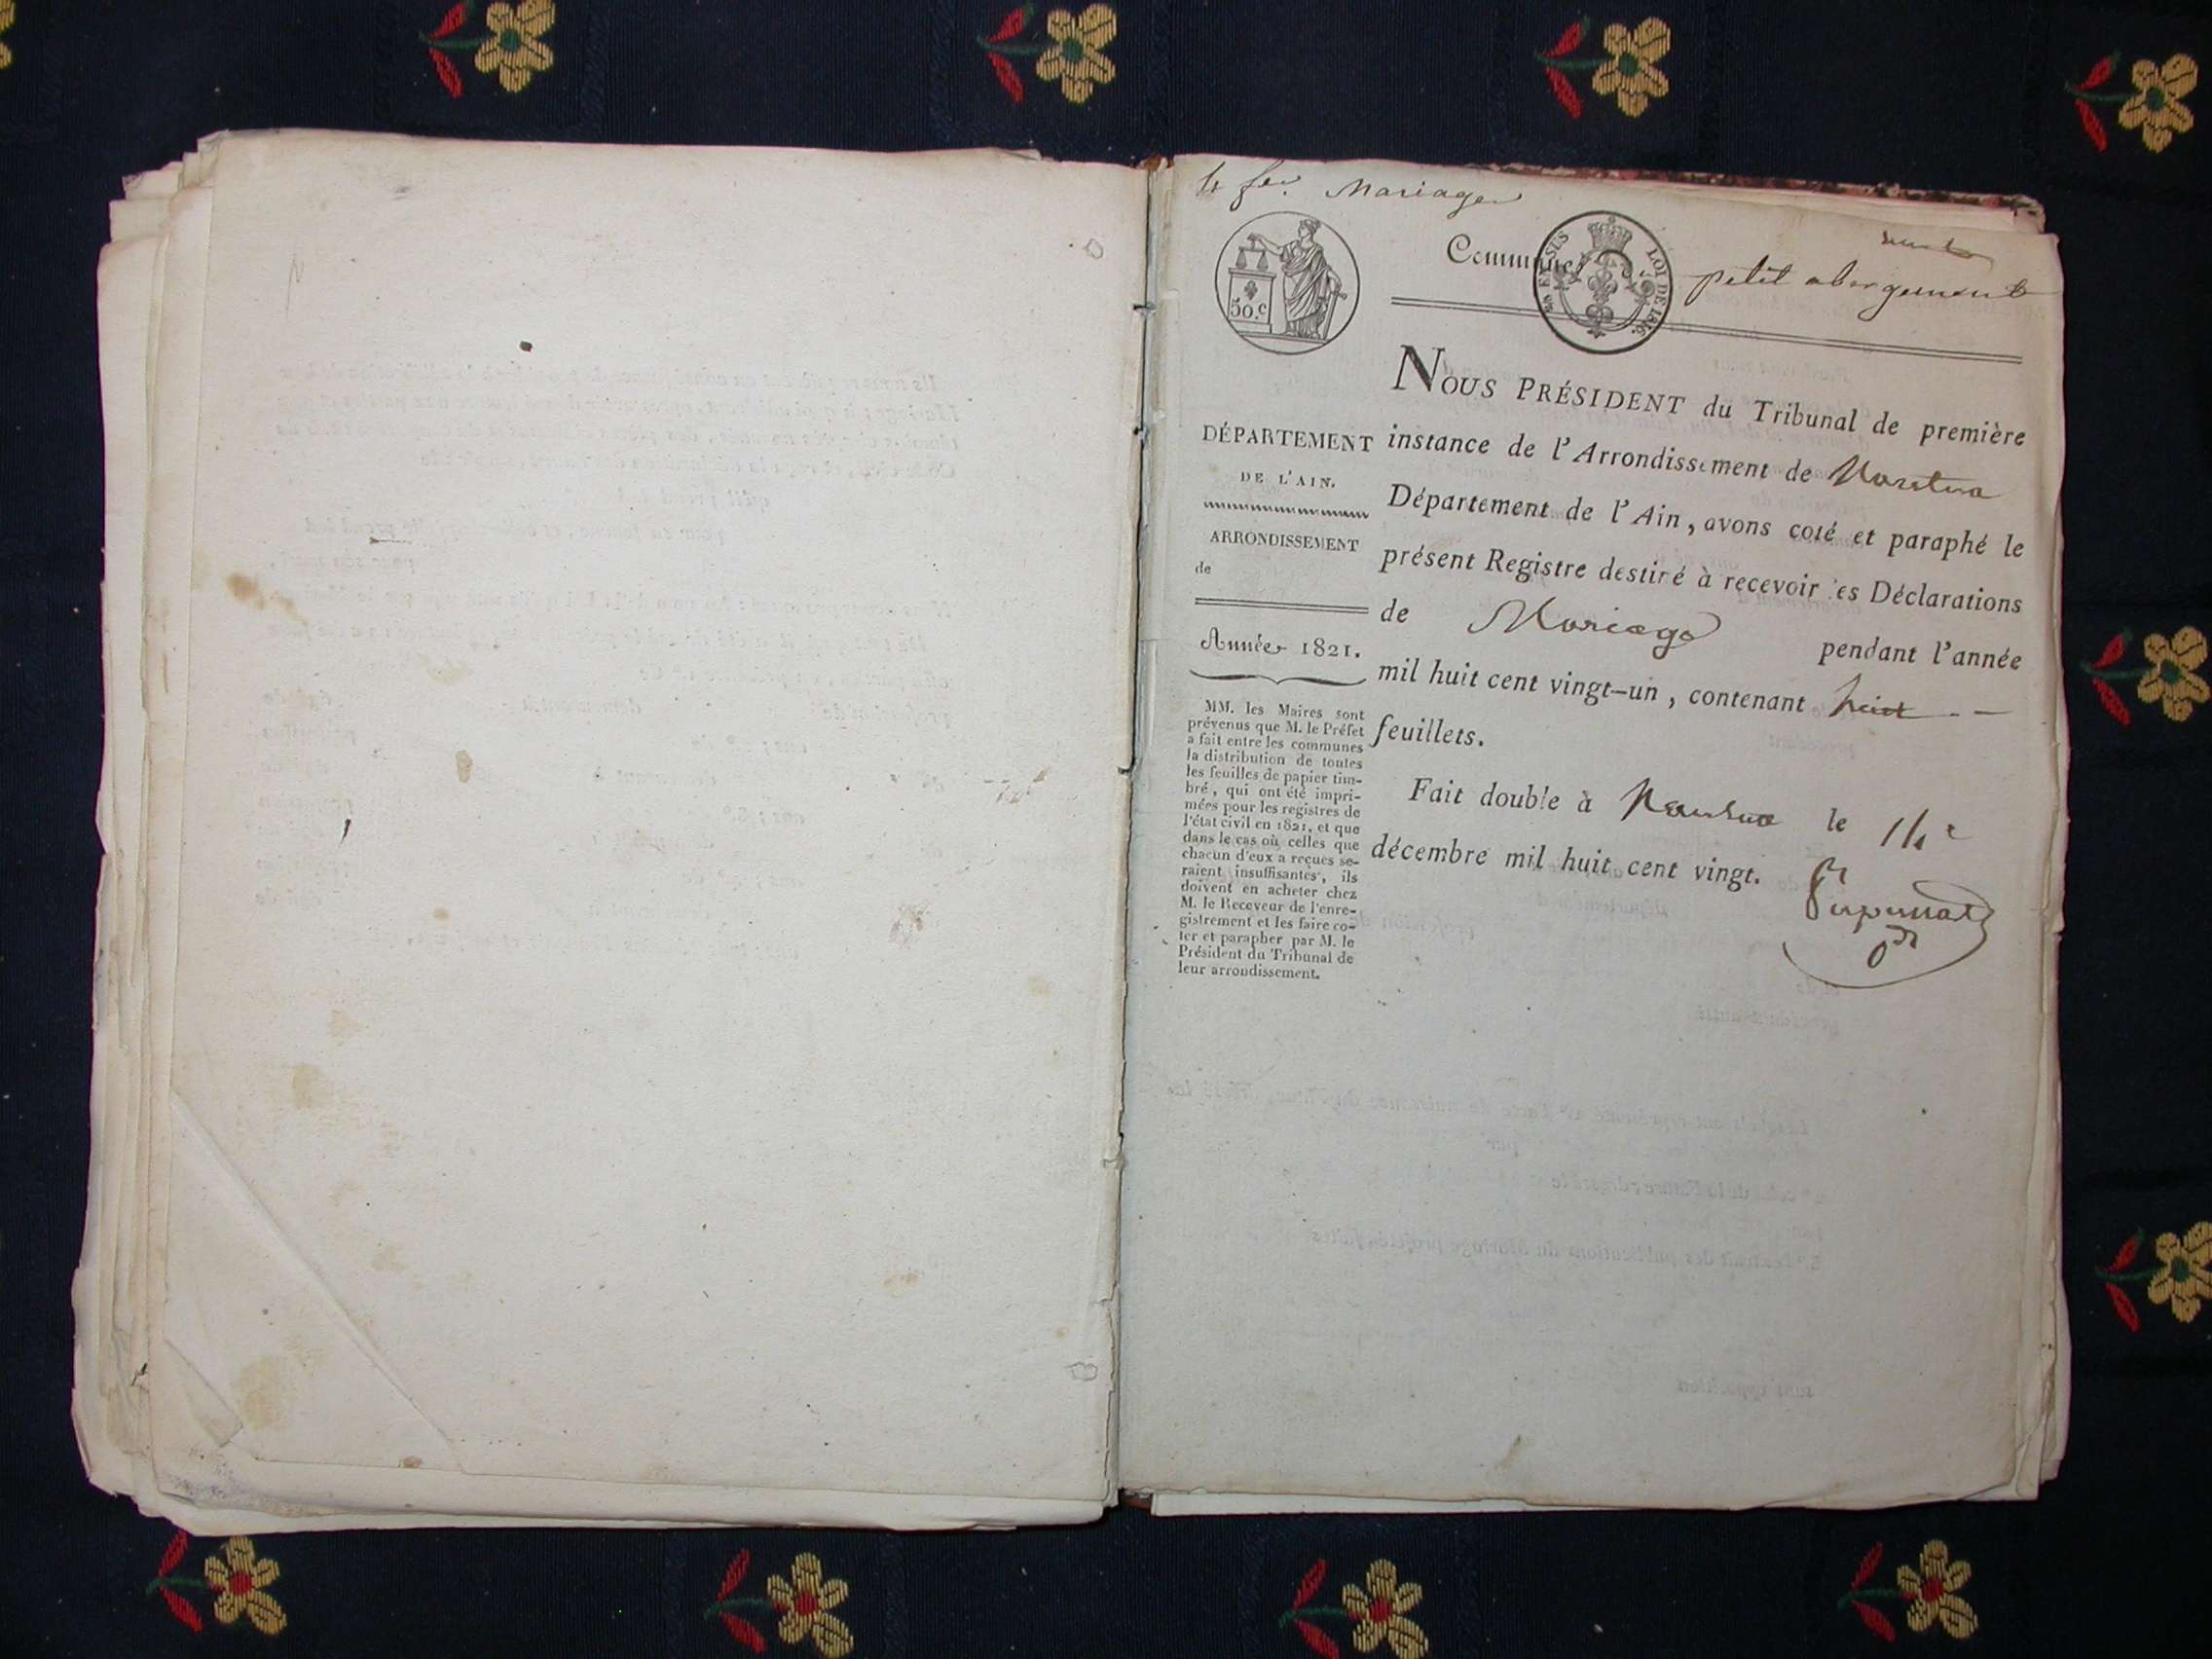 Mariages
50.c
EN SUS
LOI DE 1816.
Commune d
petit abergement
NOUS PRÉSIDENT du Tribunal de première
instance de l'Arrondissement de Nantua
Département de l'Ain, avons coté et paraphé le
présent Registre destiné à recevoir les Déclarations
de Mariage pendant l'année
mil huit cent vingt-un, contenant huit
feuillets.
Fait double à Nantua le 14e
décembre mil huit cent vingt.
DÉPARTEMENT
DE L'AIN.
ARRONDISSEMENT
de
Année 1821.
MM. les Maires sont
prévenus que M. le Préfet
a fait entre les communes
la distribution de toutes
les feuilles de papier tim-
bré, qui ont été impri-
mées pour les registres de
l'état civil en 1821, et que
dans le cas où celles que
chacun d'eux a reçues se-
raient insuffisantes, ils
doivent en acheter chez
M. le Receveur de l'enre-
gistrement et les faire co-
ter et parapher par M. le
Président du Tribunal de
leur arrondissement.